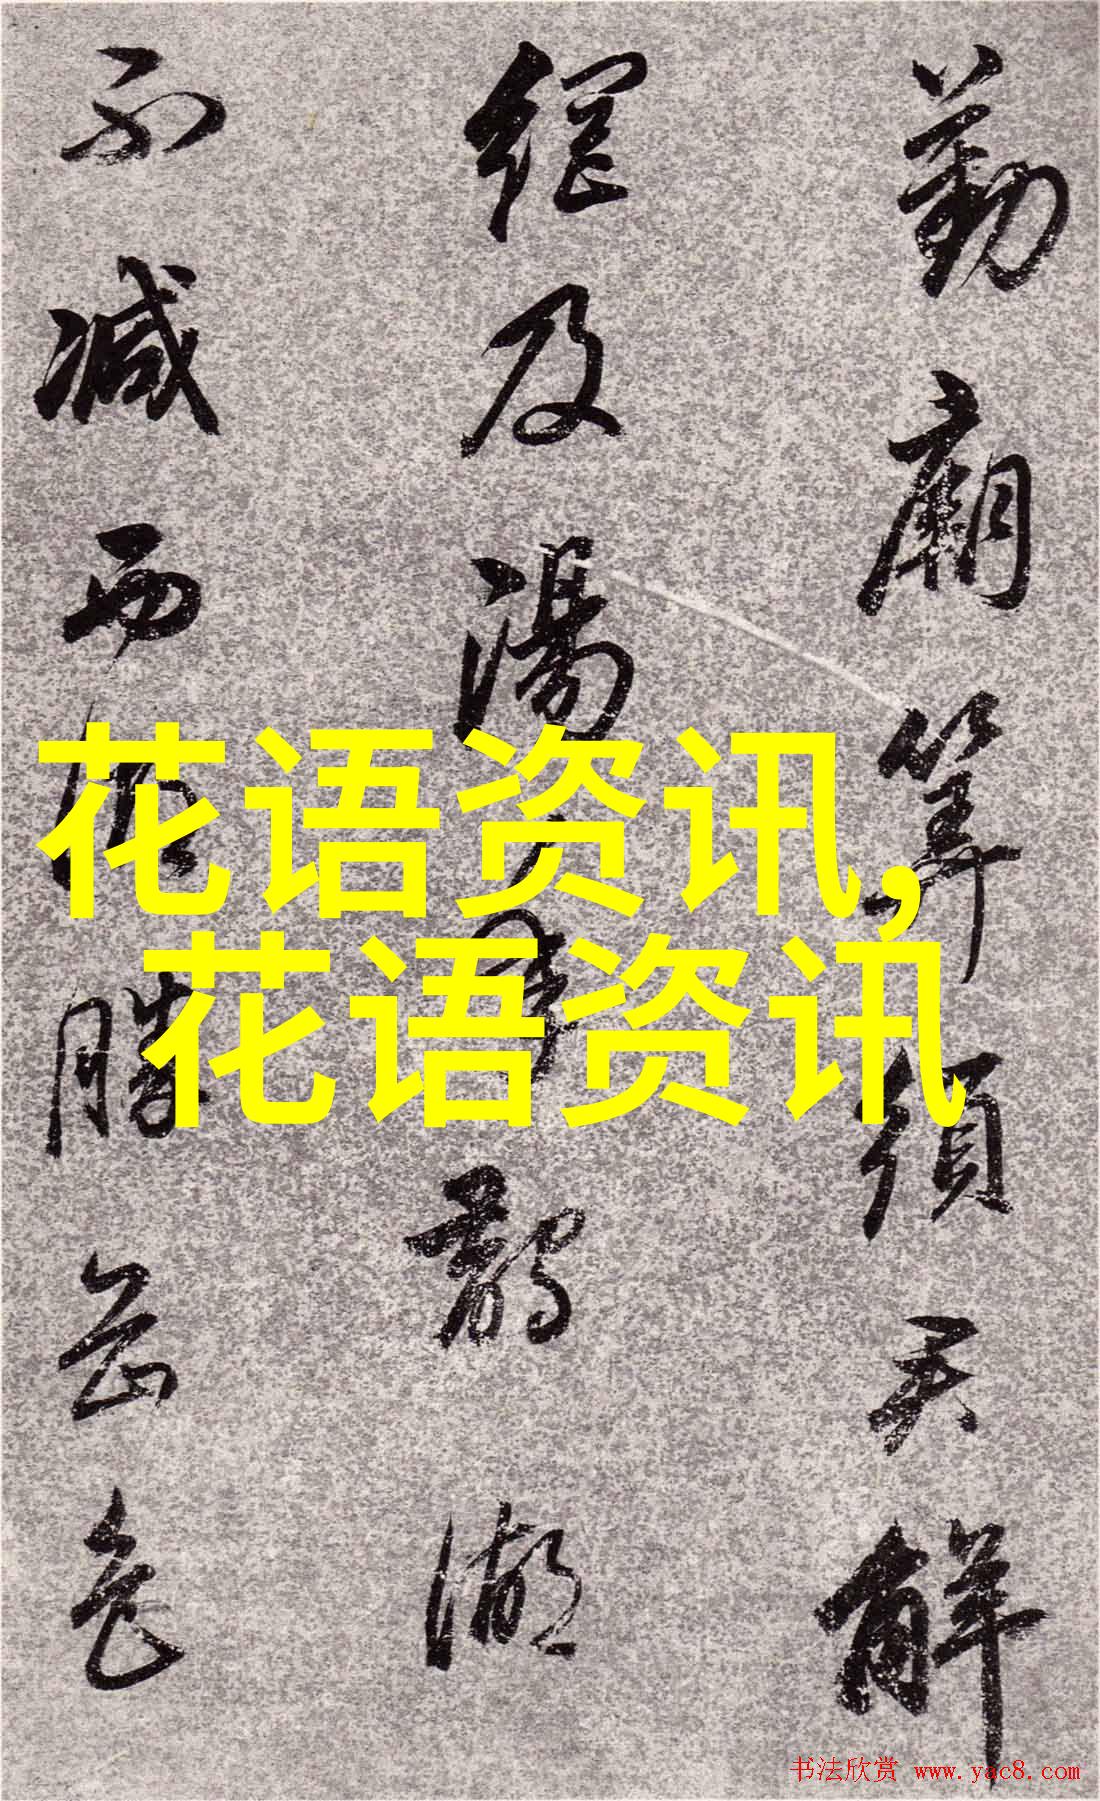 勤廟算須君解
網及湯鵲湖
不減西勝岳色
花语资讯,
花语资讯
书法欣赏 www.yac8.com